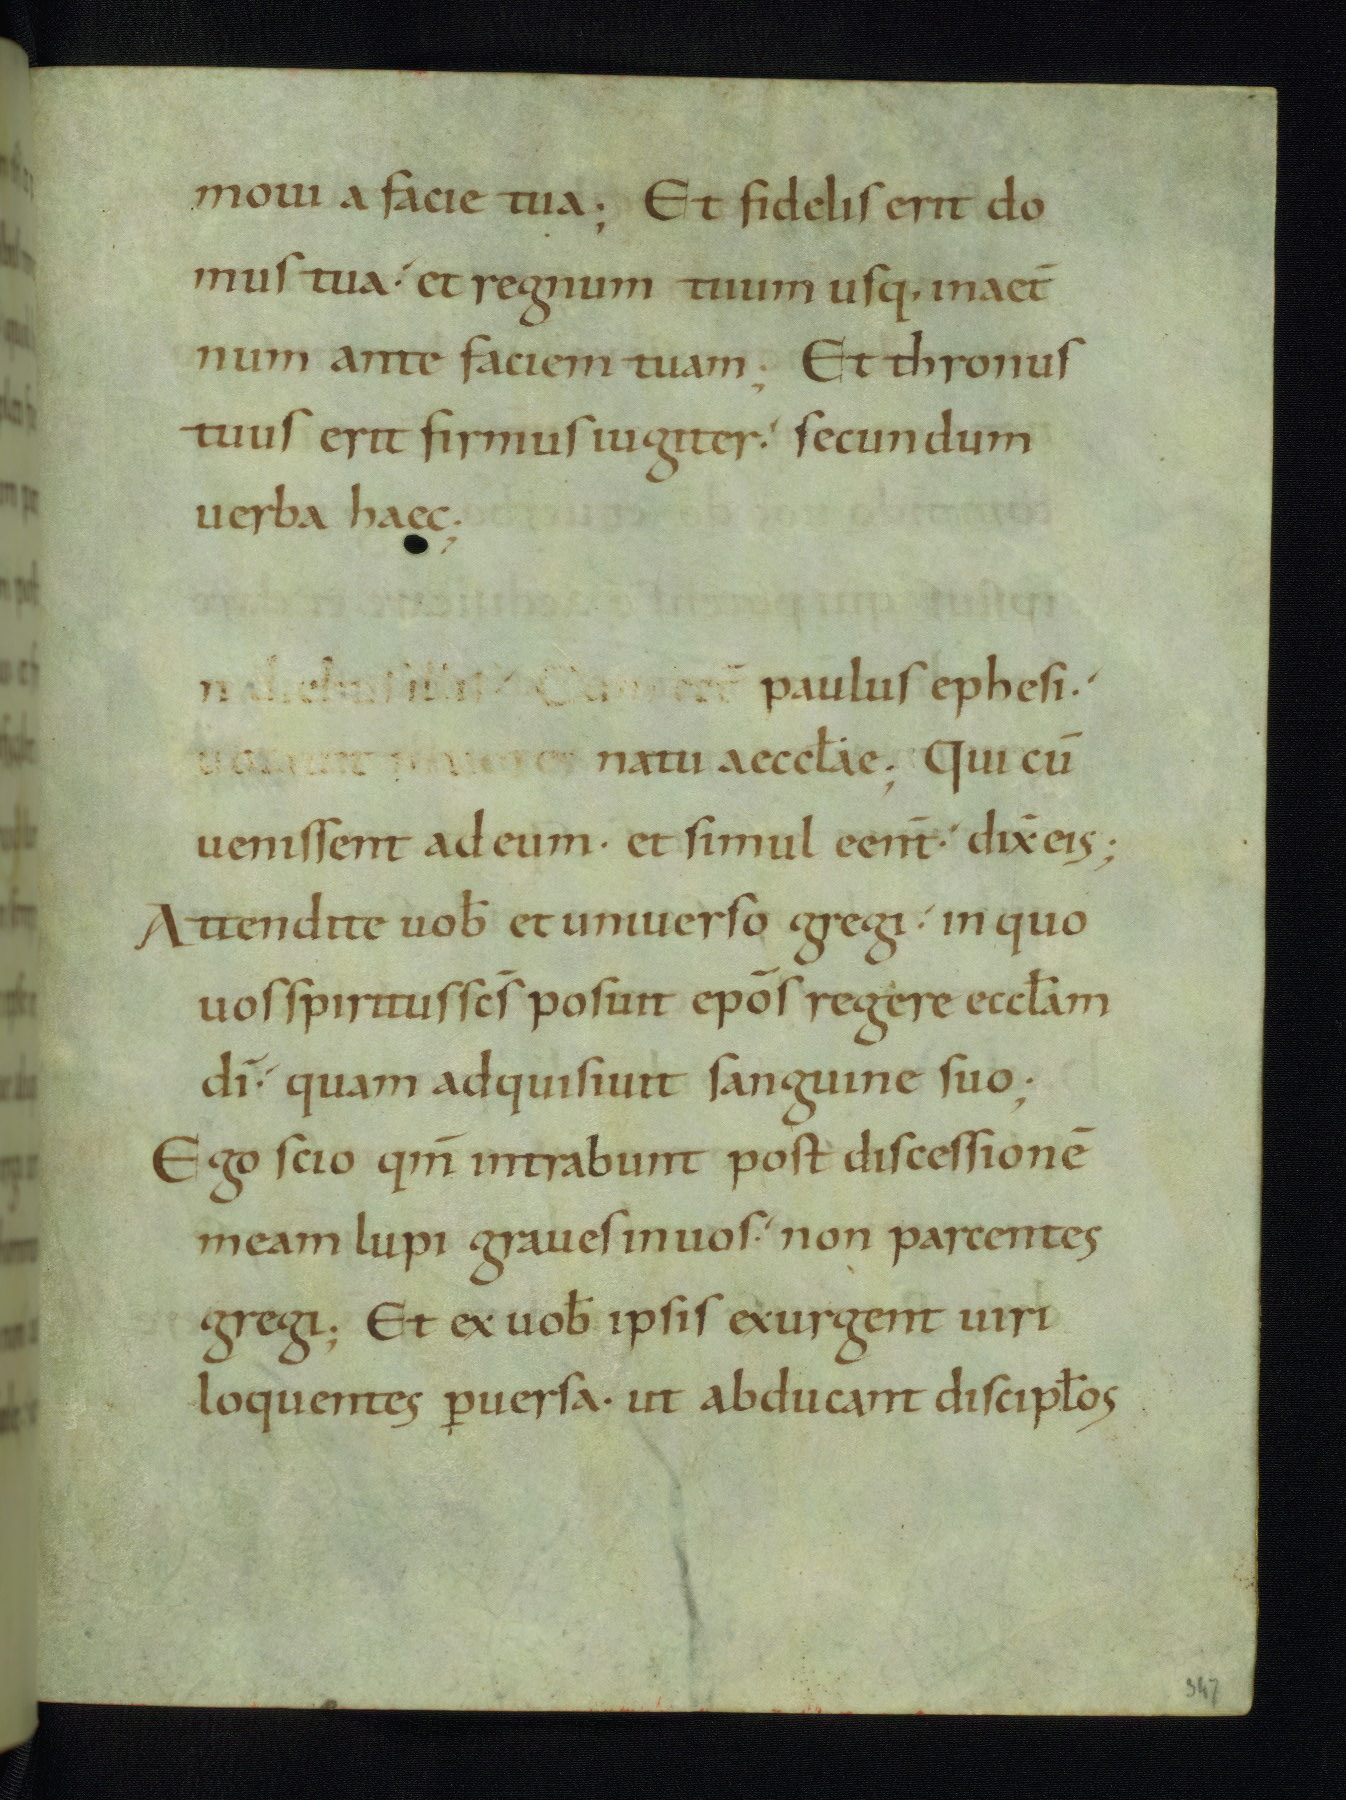 moui a facie tua; Et fidelis erit do
mus tua; et regnum tuum usq; inaet̄
num ante faciem tuam; Et thronus
tuus erit firmus iugiter; secundum
uerba haec;
n diebus illis paulus ephesi;
natu aeccłae; Qui cū
uenissent ad eum· et simul eēnt; dix̄ eis;
Attendite uob̄ et uniuerso gregi; in quo
uos spiritus sc̄s posuit ep̄os regere eccłam
dī; quam adquisiuit sanguine suo;
Ego scio qm̄ intrabunt post discessionē
meam lupi graues in uos; non parcentes
gregi; Et ex uob̄ ipsis exurgent uiri
loquentes ꝑuersa· ut abducant discipłos
347